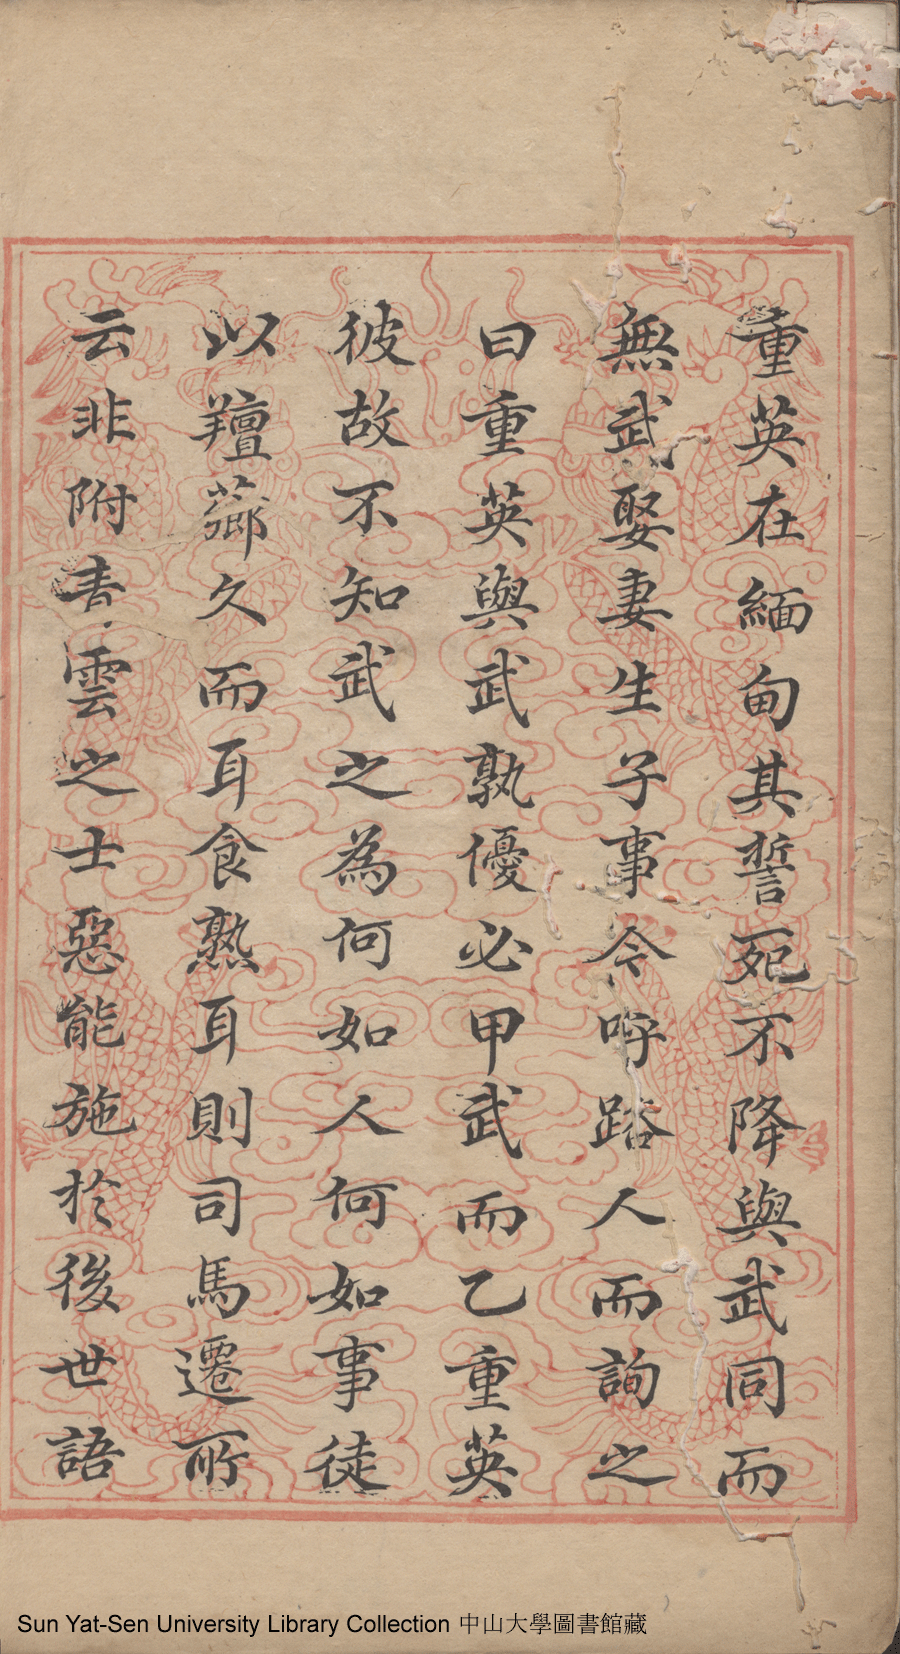 重英在緬甸其誓死不降與武同而
無武娶妻生子事令呼踏人而詢之
曰重英與武孰優必甲武而乙重英
彼故不知武之為何如人何如事徒
以羶薌久而耳食熟耳則司馬遷所
云非附青雲之士惡能施於後世語
Sun Yat-Sen University Library Collection 中山大學圖書館藏